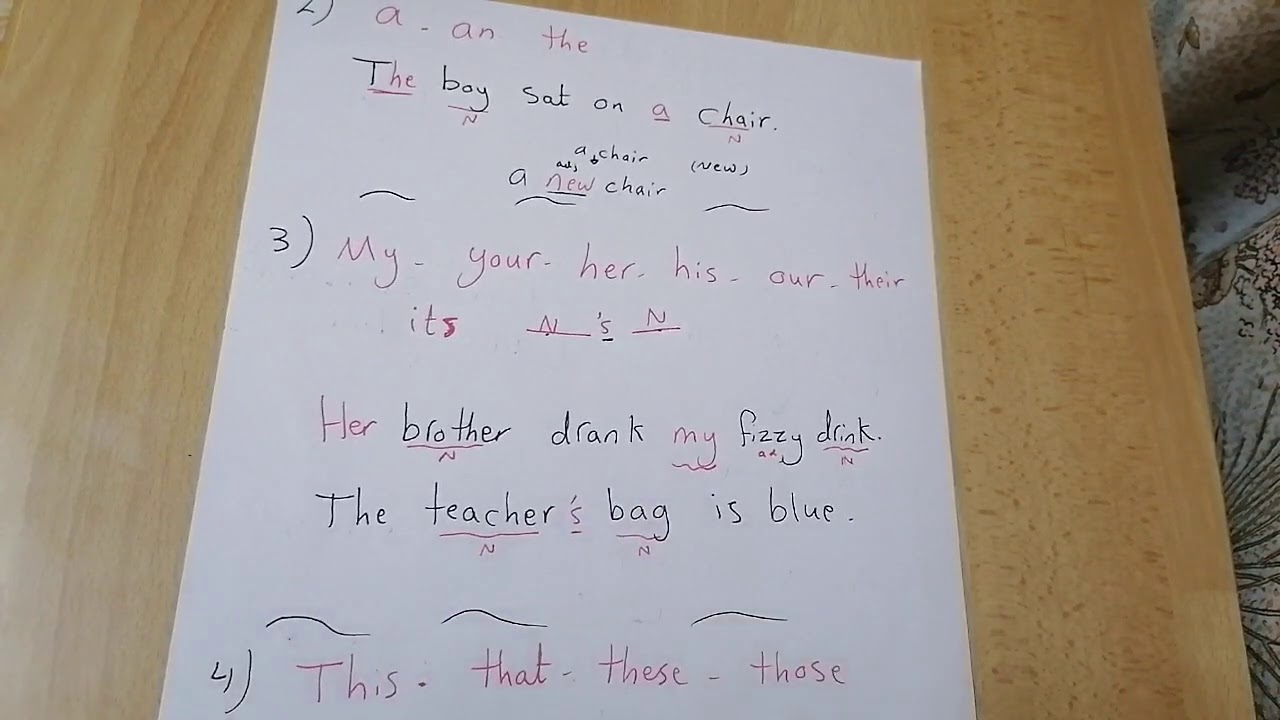 2) a - an the
The boy sat on a chair.
N N
a chair (New)
adj
a new chair
3) My - your - her - his - our - their
its N 's N
Her brother drank my fizzy drink.
N adj N
The teacher's bag is blue.
N N
4) This - that - these - those